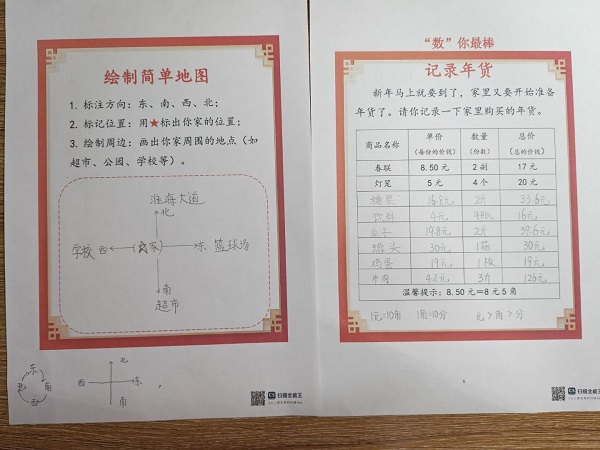 绘制简单地图
1. 标注方向：东、南、西、北；
2. 标记位置：用★标出你家的位置；
3. 绘制周边：画出你家周围的地点（如
超市、公园、学校等）。
淮海大道
北
学校 西 家 东 篮球场
南
超市
东
南
西
北
北
西 东
南
扫描全能王
“数”你最棒
记录年货
新年马上就要到了，家里又要开始准备
年货了。请你记录一下家里购买的年货。
商品名称 单价 数量 总价
（每份的价钱） （份数） （总的价钱）
春联 8.50元 2副 17元
灯笼 5元 4个 20元
糖果 16.8元 2斤 33.6元
饮料 4元 4瓶 16元
瓜子 19.8元 2斤 39.6元
罐头 30元 1箱 30元
鸡蛋 19元 1板 19元
牛肉 42元 3斤 126元
温馨提示：8.50元=8元5角
1元=10角 1角=10分 元>角>分
扫描全能王